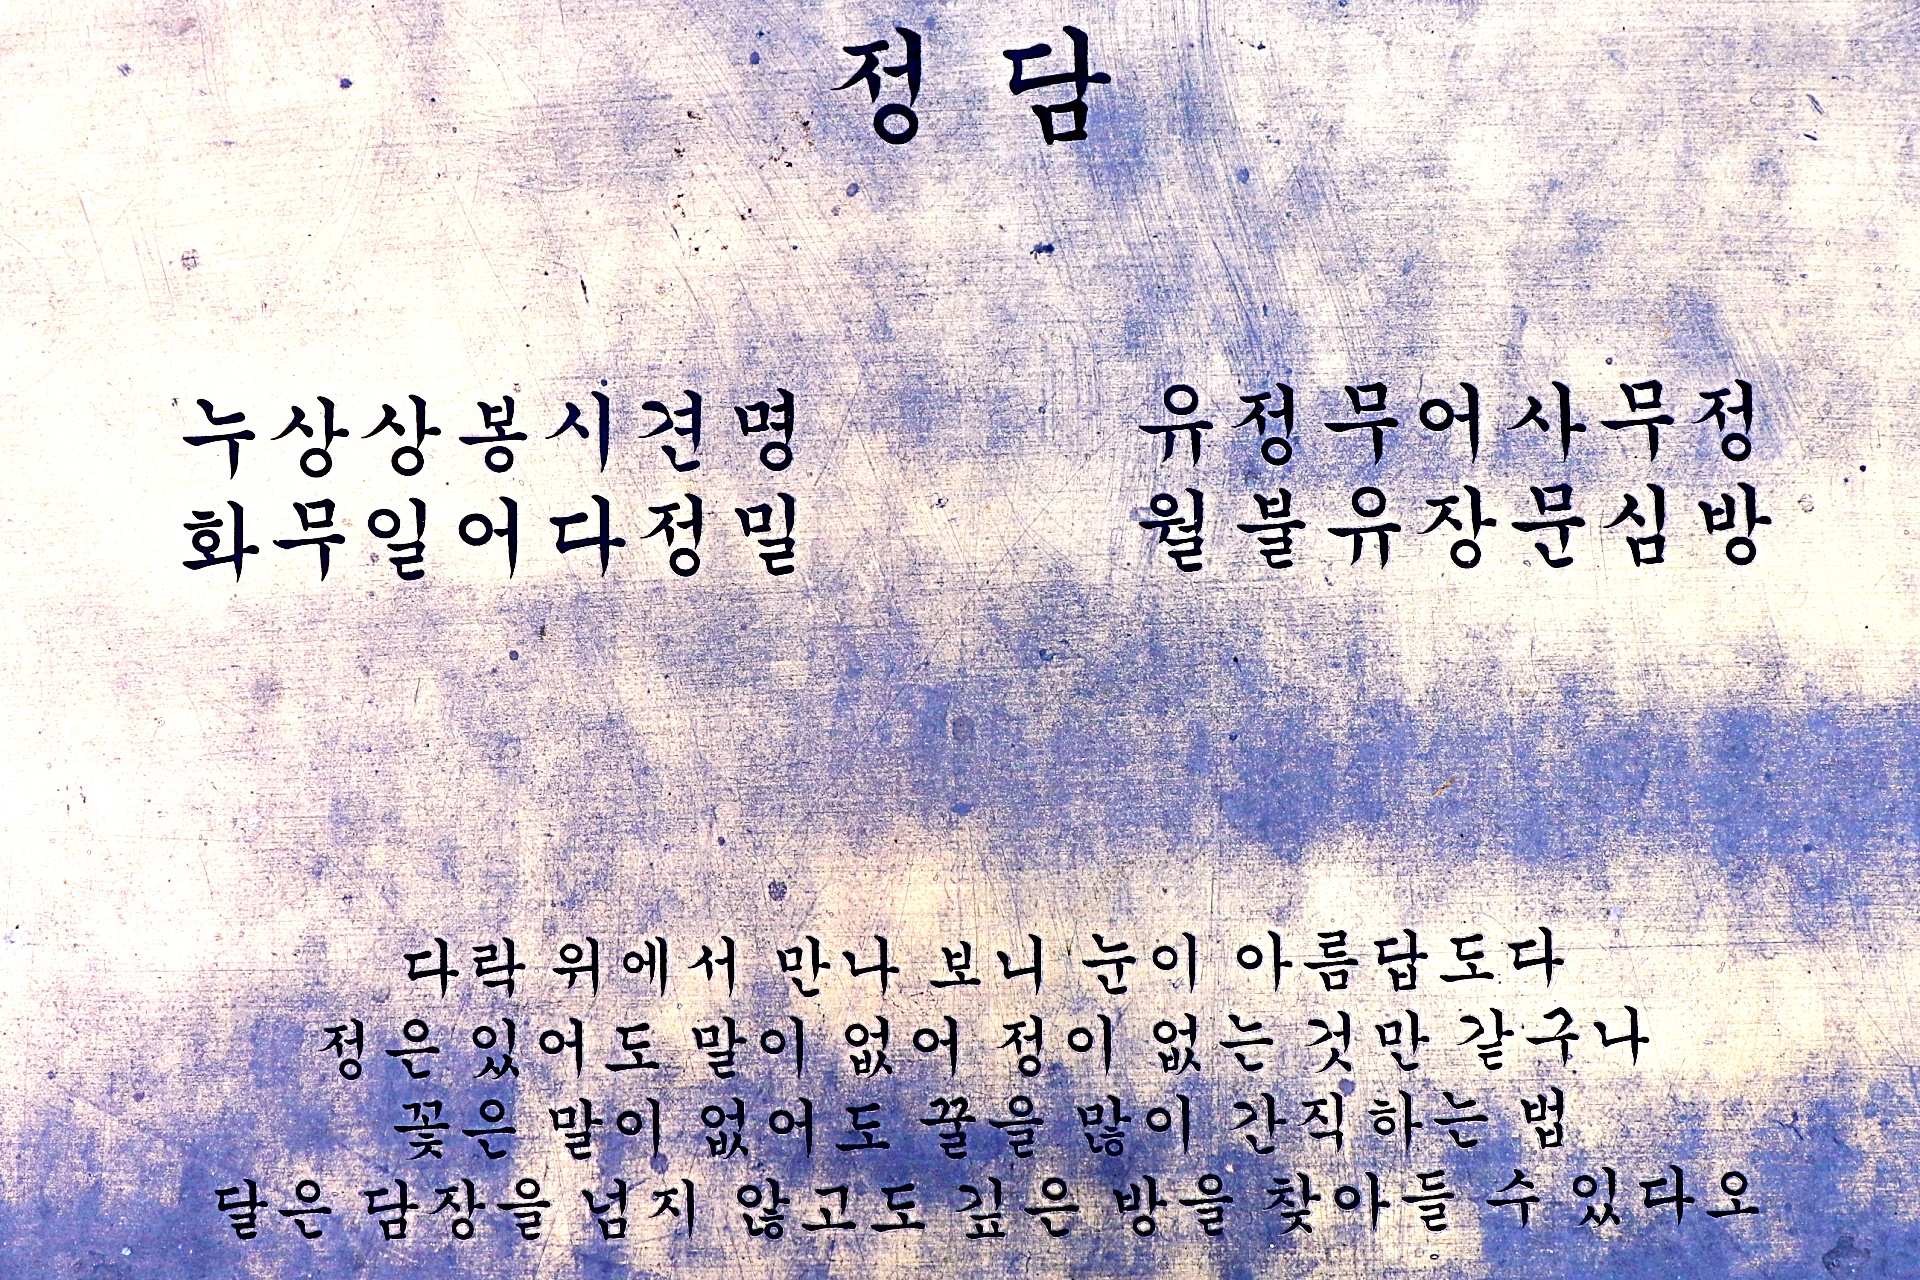 정 담
누상상봉시견명 유정무어사무정
화무일어다정밀 월불유장문심방
다락 위에서 만나 보니 눈이 아름답도다
정은 있어도 말이 없어 정이 없는 것만 같구나
꽃은 말이 없어도 꿀을 많이 간직하는 법
달은 담장을 넘지 않고도 깊은 방을 찾아들 수 있다오